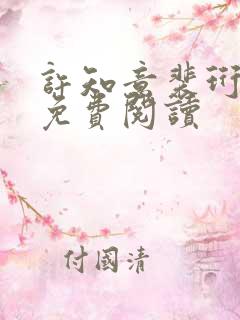 許知意裴珩
免費閱讀
付國清